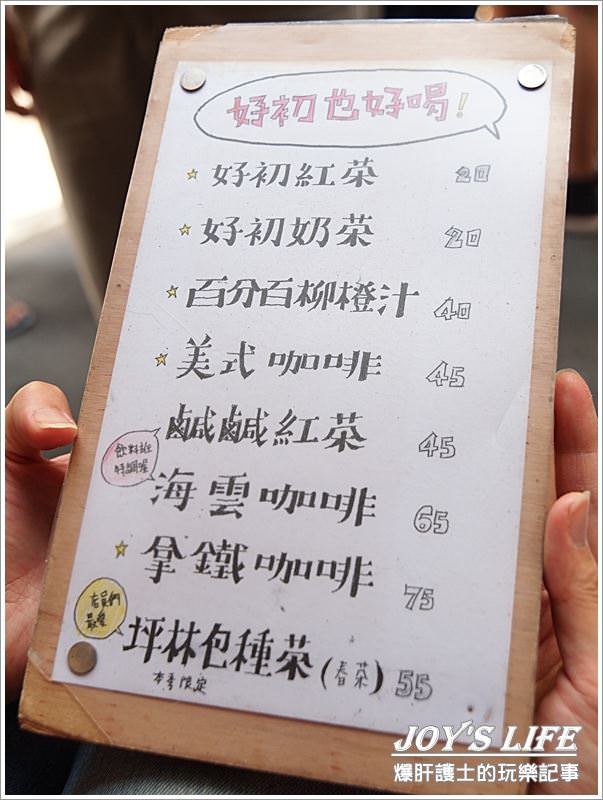 好初也好喝!
好初紅茶 20
好初奶茶 20
百分百柳橙汁 40
美式咖啡 45
鹹鹹紅茶 45
飲料班
特調喔
海雲咖啡 65
拿鐵咖啡 75
店員們
最愛
坪林包種茶(春茶) 55
本季限定
JOY'S LIFE
爆肝護士的玩樂記事